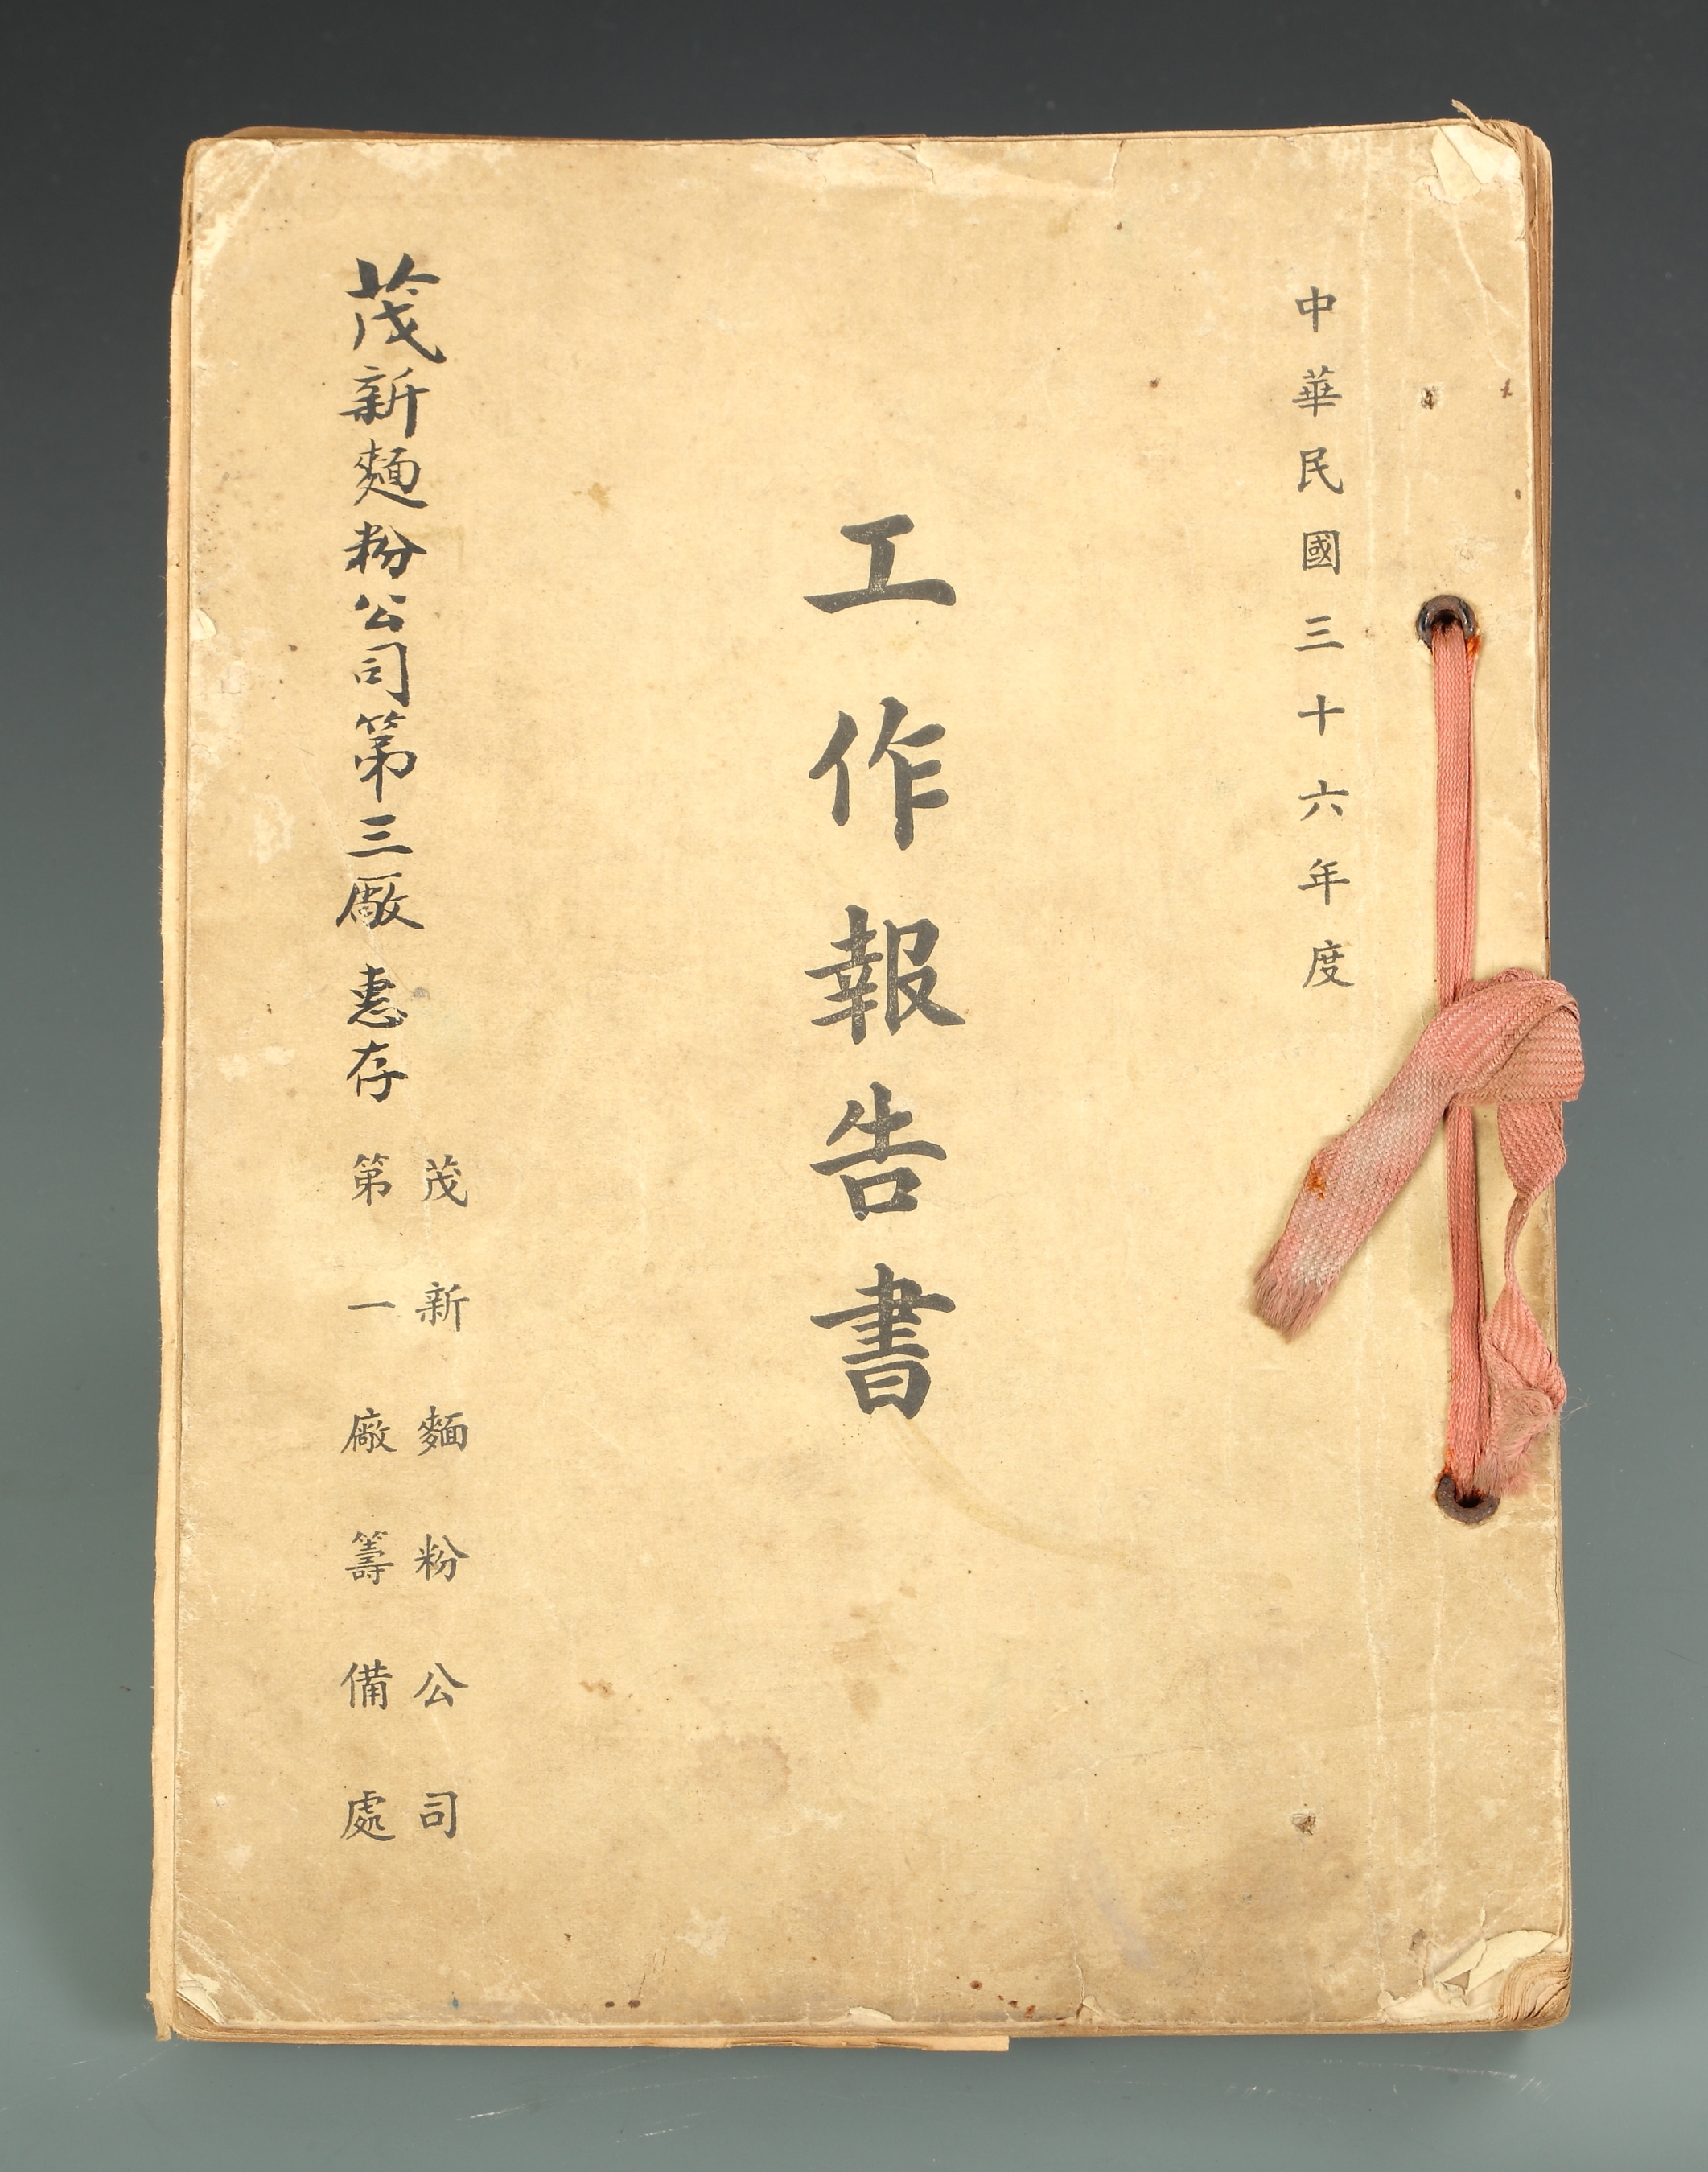 中華民國三十六年度
工作報告書
茂新麵粉公司
第一廠籌備處
茂新麵粉公司第三廠 惠存